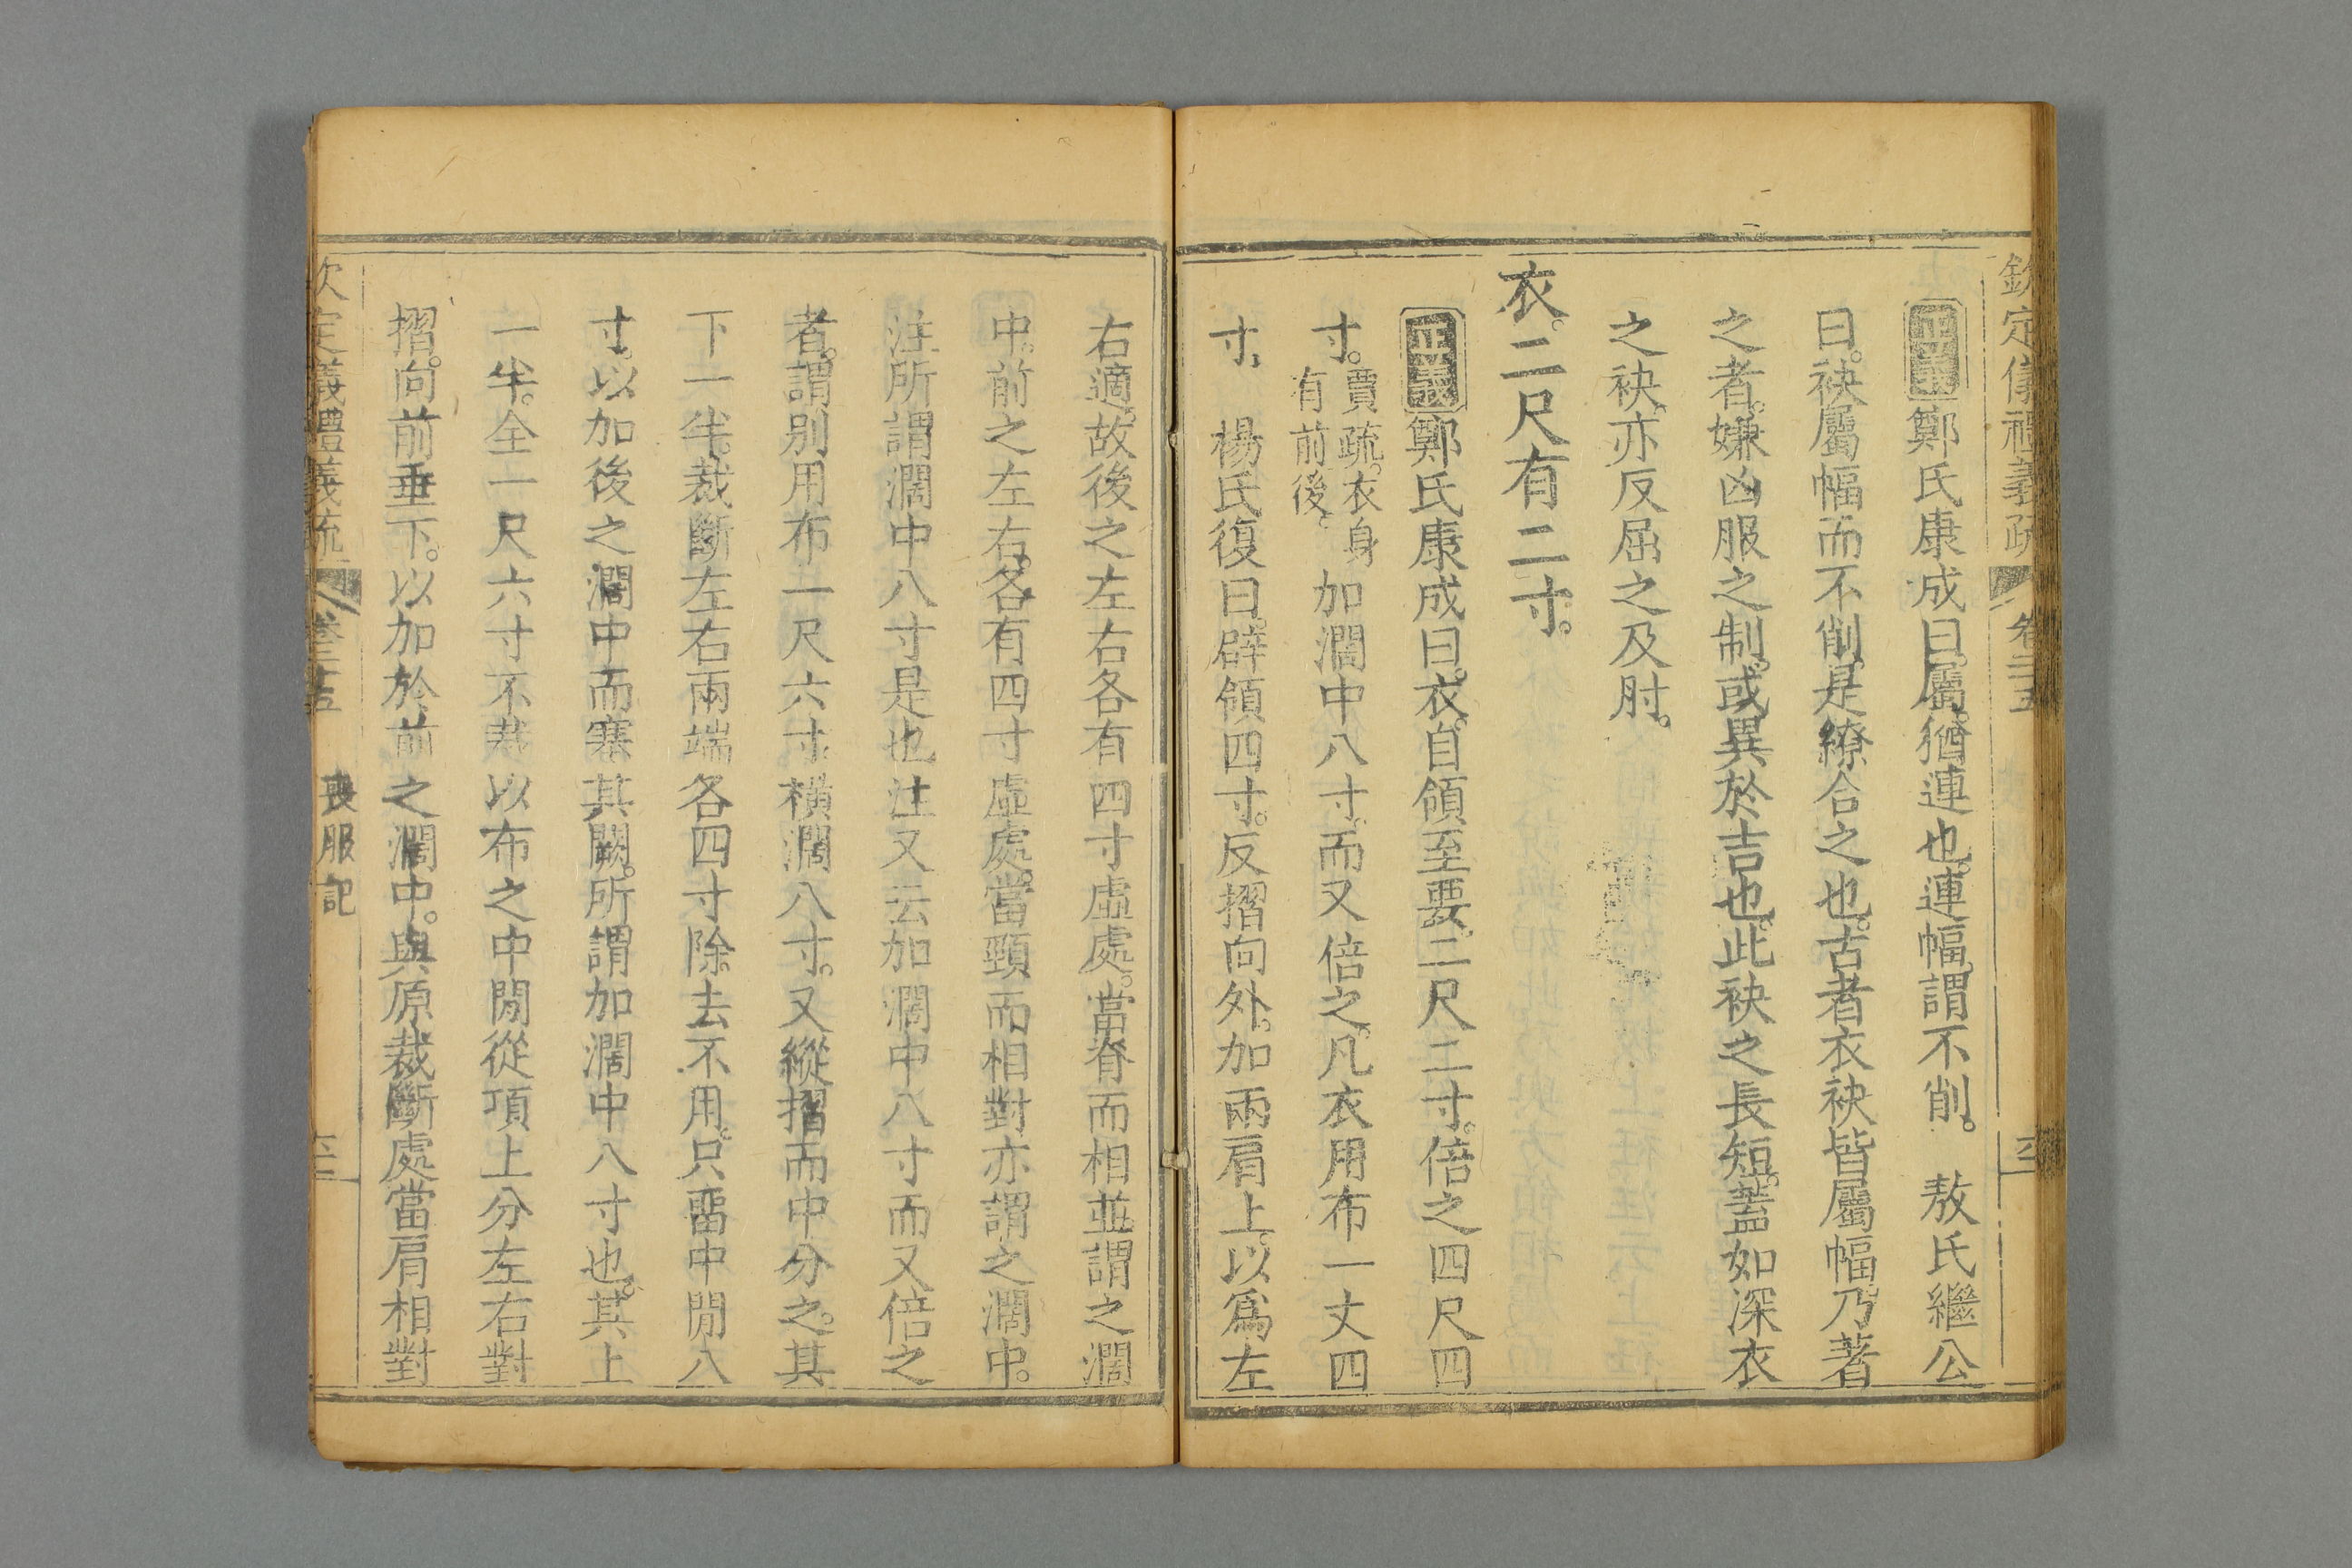 欽定儀禮義疏 卷二十五
正義鄭氏康成曰。屬。猶連也。連幅。謂不削。 敖氏繼公
曰。袂屬幅而不削。是繚合之也。古者衣袂皆屬幅。乃著
之者。嫌凶服之制。或異於吉也。此袂之長短。蓋如深衣
之袂。亦反屈之及肘。
衣。二尺有二寸。
正義鄭氏康成曰。衣。自領至要。二尺二寸。倍之四尺四
寸。賈疏。衣身有前後。加濶中八寸。而又倍之。凡衣用布一丈四
寸。 楊氏復曰。辟領四寸。反摺向外。加兩肩上。以爲左
右適。故後之左右各有四寸虛處。當脊而相並。謂之濶
中。前之左右。各有四寸虛處。當頸而相對。亦謂之濶中。
注所謂濶中八寸是也。注又云加濶中八寸而又倍之
者。謂別用布一尺六寸。橫濶八寸。又縱摺而中分之。其
下一半。裁斷左右兩端各四寸。除去不用。只畱中閒八
寸。以加後之濶中而塞其闕。所謂加濶中八寸也。其上
一半。全一尺六寸不裁。以布之中閒從項上分左右對
摺。向前垂下。以加於前之濶中。與原裁斷處當肩相對
欽定儀禮義疏 卷二十五 喪服記